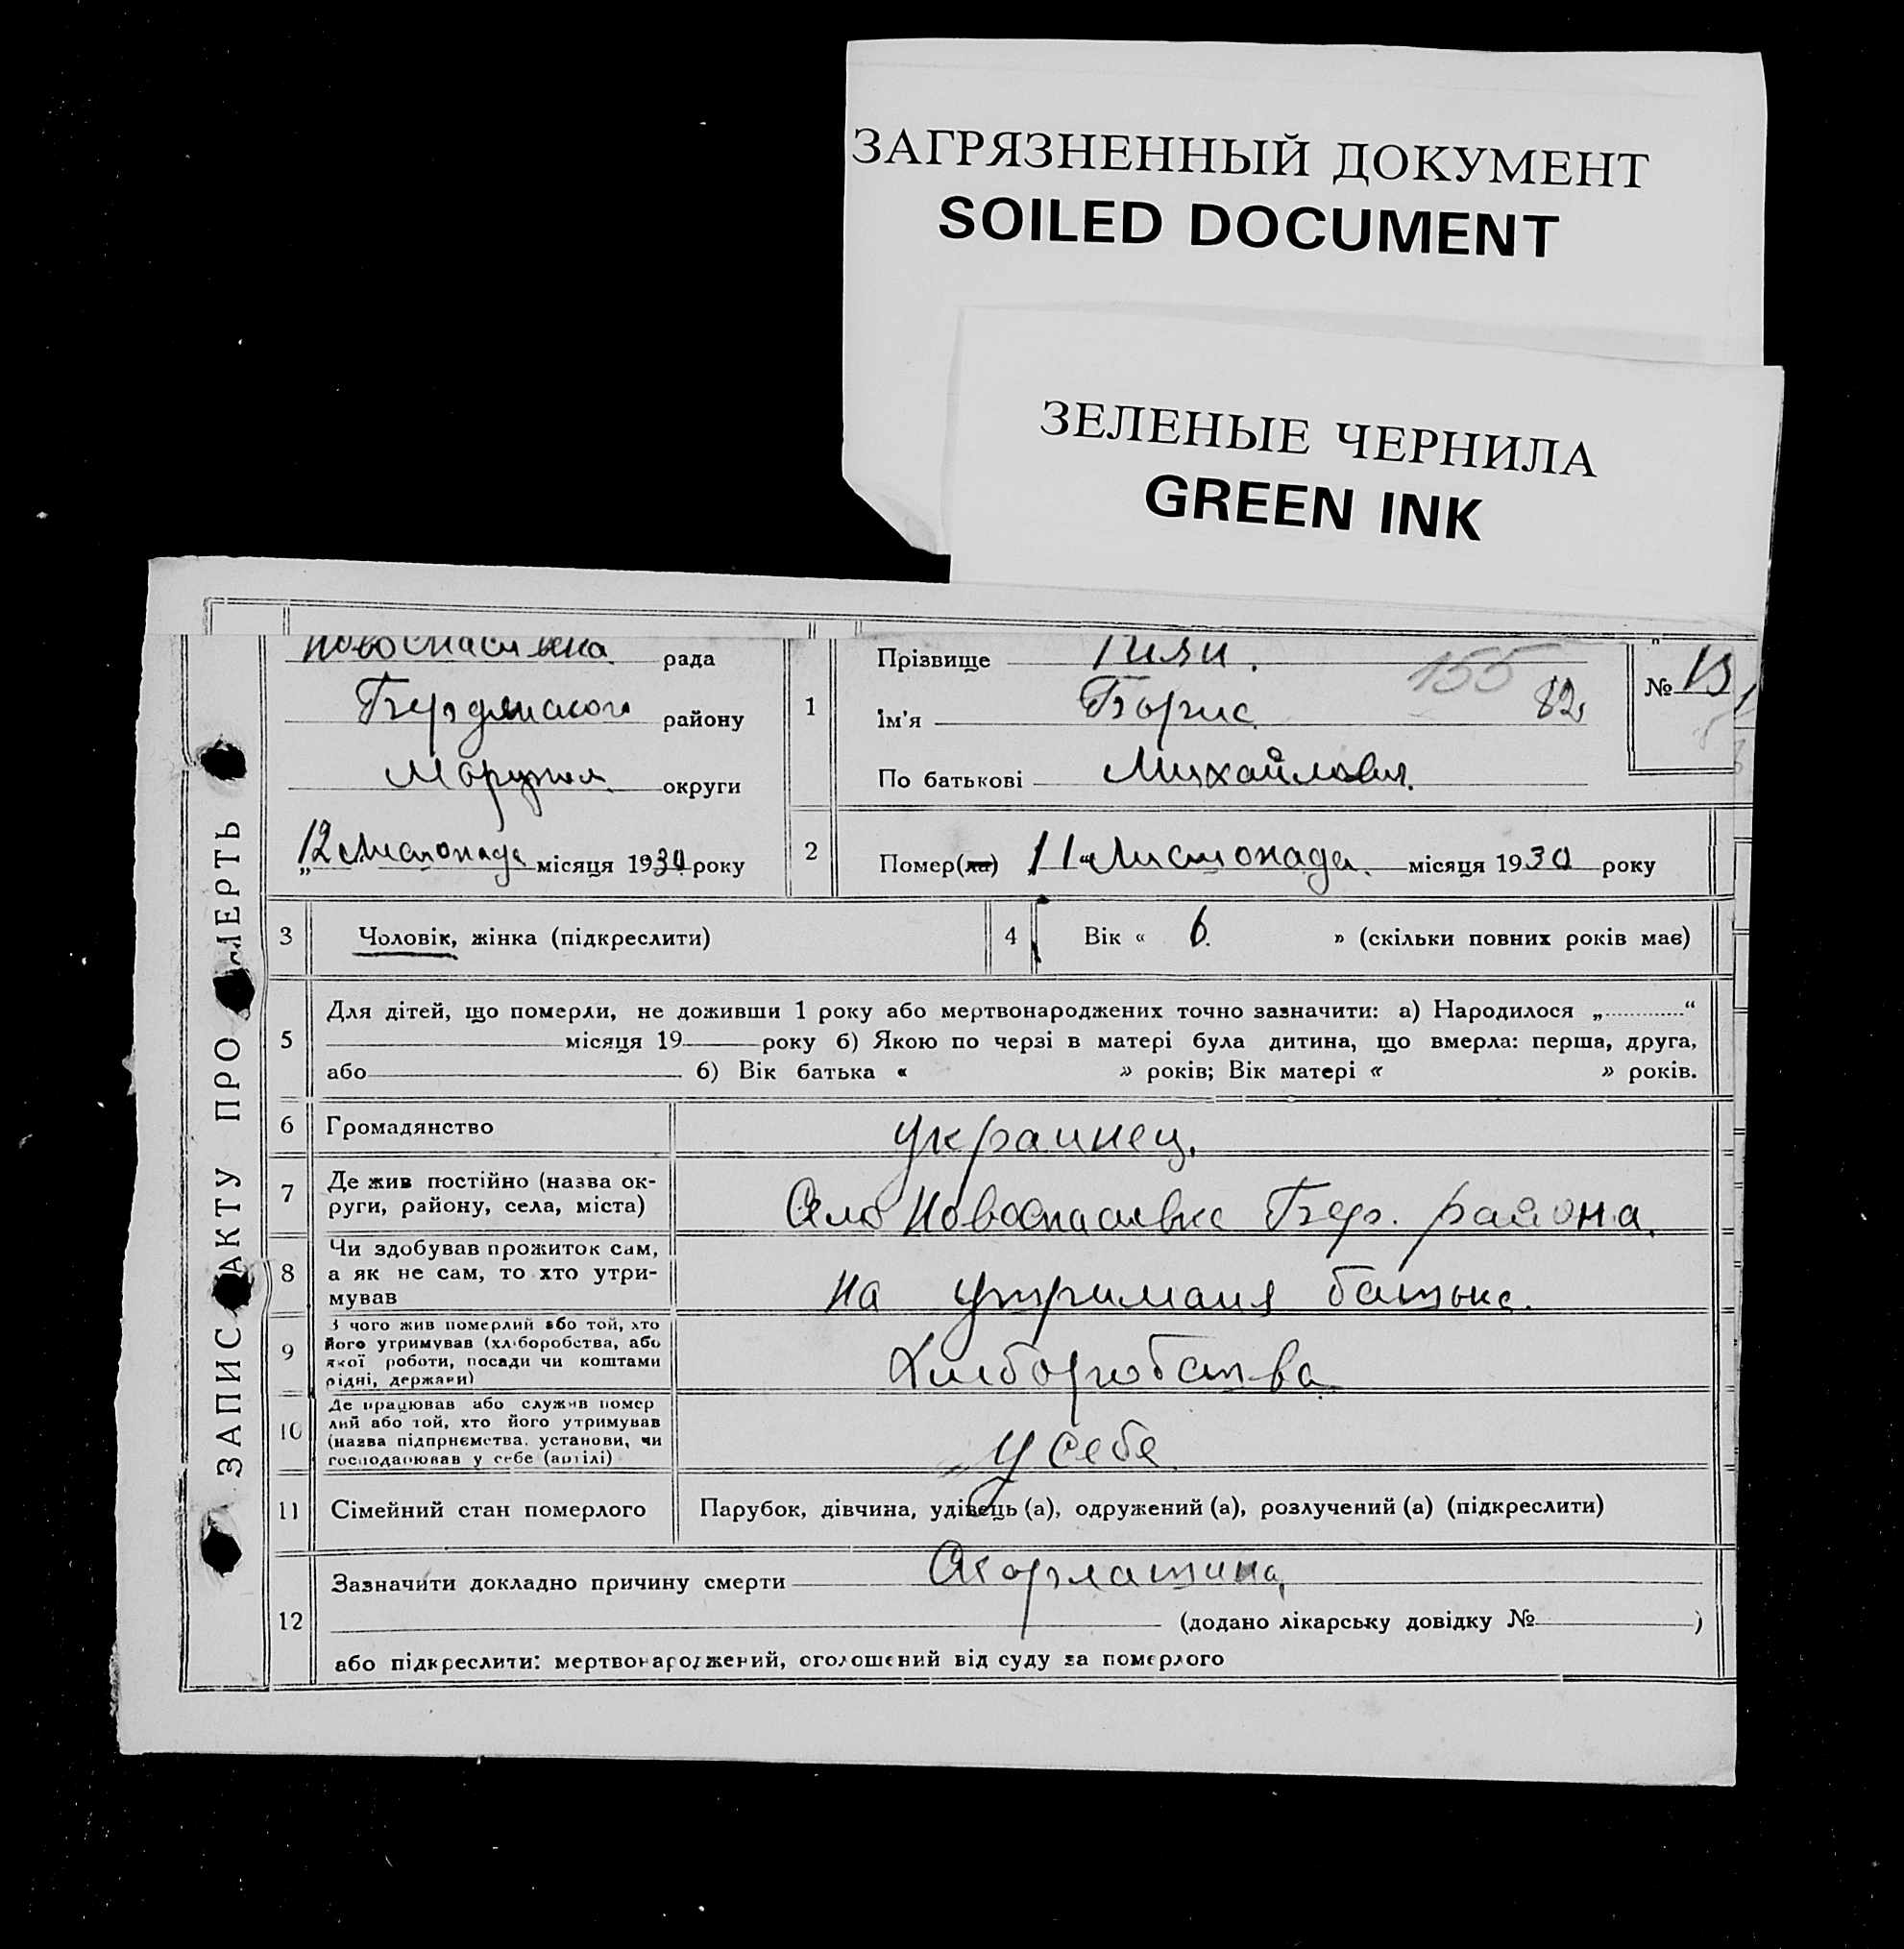 ЗАГРЯЗНЕННЫЙ ДОКУМЕНТ
SOILED DOCUMENT
ЗЕЛЕНЫЕ ЧЕРНИЛА
GREEN INK
ЗАПИС АКТУ ПРО
рада
Бердянского району
округи
12 Листопада місяця 1930 року
1
Прізвище
155
Ім'я Борис 82
По батькові Михайлович.
№
2
Помер(ла) 11 Листопада. місяця 1930 року
3
Чоловік, жінка (підкреслити)
4
Вік « 6. » (скільки повних років має)
5
Для дітей, що померли, не доживши 1 року або мертвонароджених точно зазначити: а) Народилося „ “
місяця 19 року б) Якою по черзі в матері була дитина, що вмерла: перша, друга,
або б) Вік батька « » років; Вік матері « » років.
6
Громадянство
украинец.
7
Де жив постійно (назва ок-
руги, району, села, міста)
Село Новоспасивка Бер. района.
8
Чи здобував прожиток сам,
а як не сам, то хто утри-
мував
на утриманя батька.
9
З чого жив померлий або той, хто
його утримував (хліборобства, або
якої роботи, посади чи коштами
рідні, держави)
Хлиборобства
10
Де працював або служив помер
лий або той, хто його утримував
(назва підприємства, установи, чи
господарював у себе (артілі)
у себе
11
Сімейний стан померлого
Парубок, дівчина, удівець (а), одружений (а), розлучений (а) (підкреслити)
12
Зазначити докладно причину смерти Скорлатина
(додано лікарську довідку № )
або підкреслити: мертвонароджений, оголошений від суду за померлого